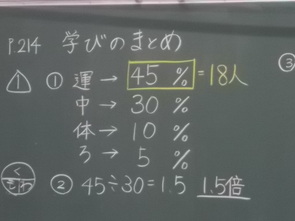 P.214 学びのまとめ
① 運→ 45 % =18人
中→ 30 %
体→ 10 %
ろ→ 5 %
② 45÷30=1.5 1.5倍
③